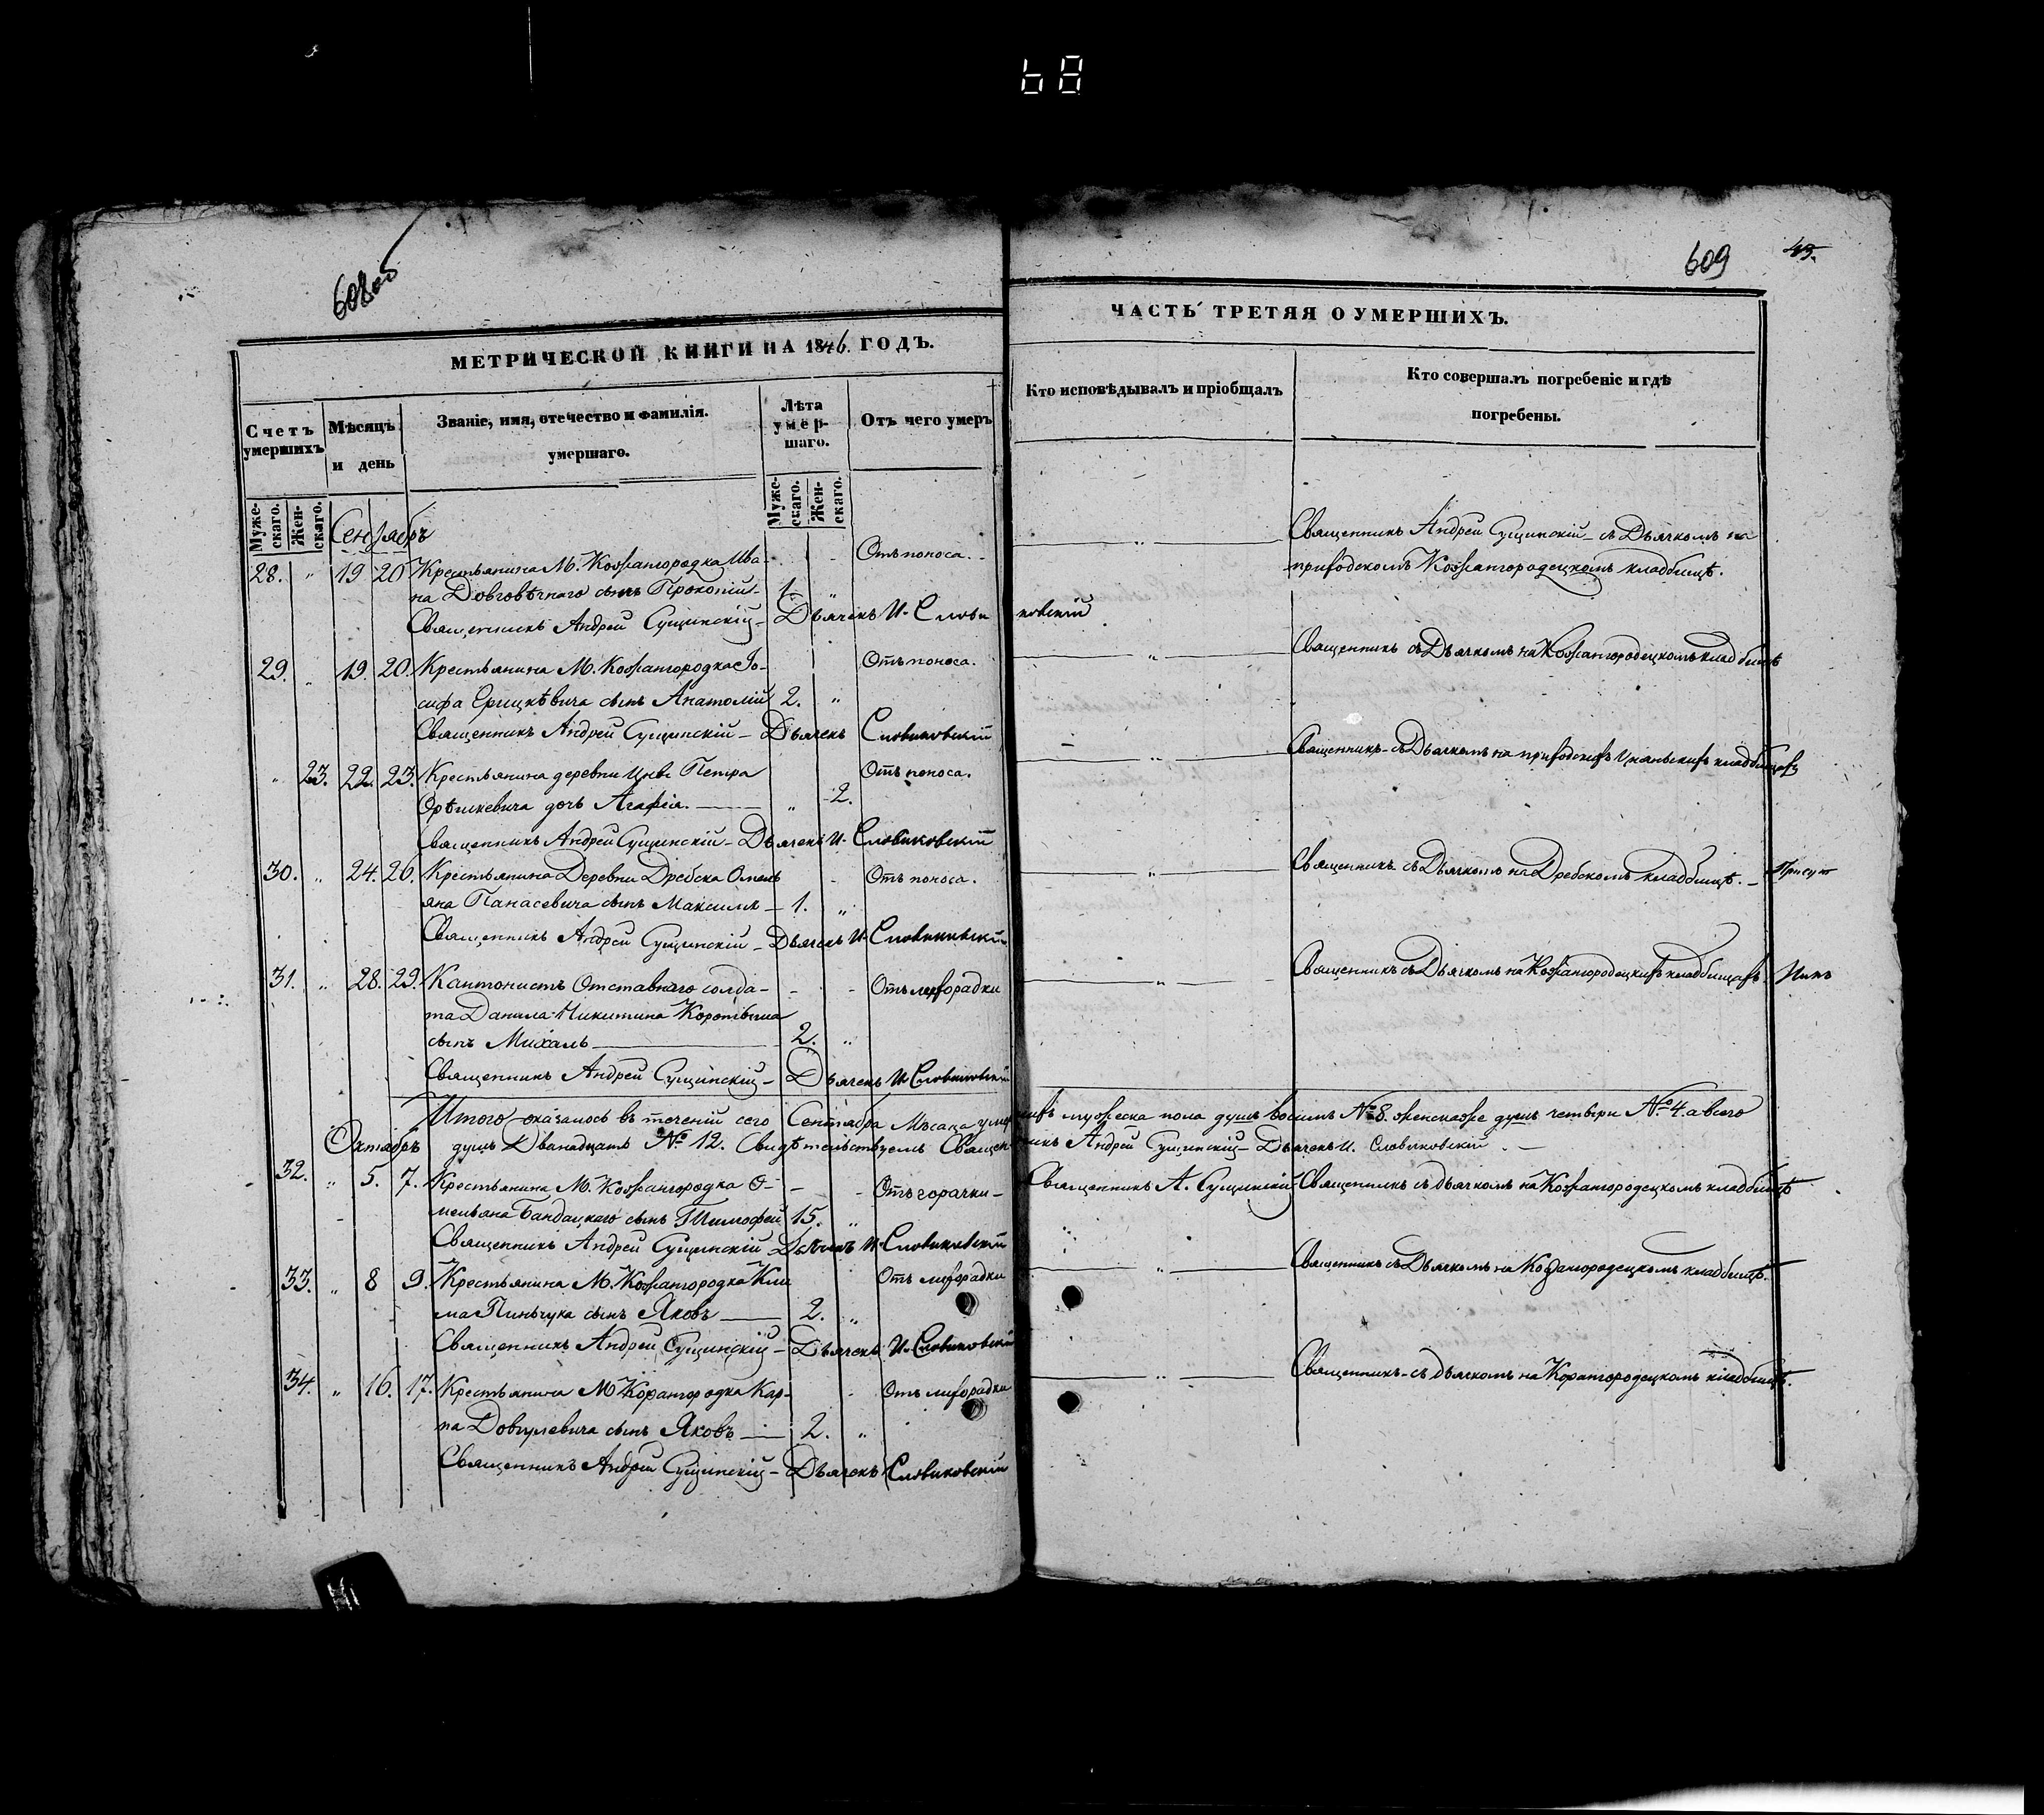 68
608 об
609
45.
МЕТРИЧЕСКОЙ КНИГИ НА 1846. ГОДЪ.
ЧАСТЬ ТРЕТЯЯ О УМЕРШИХЪ.
Счетъ умершихъ
Мѣсяцъ и день
Званіе, имя, отечество и фамилія.
умершаго.
Лѣта умер-
шаго.
Отъ чего умеръ
Кто исповѣдывалъ и пріобщалъ
Кто совершалъ погребеніе и гдѣ
погребены.
Муже-
скаго.
Жен-
скаго.
Муже-
скаго.
Жен-
скаго.
Сентябръ
28. " 19 20 Крестьянина М. Кожангородка Ива- Отъ поноса. " Священникъ Андрей Сущинскій съ Дьячкомъ на
на Довговѣчнаго сынъ Прокопій 1. " приходскомъ Кожангородецкомъ кладбищѣ.
Священникъ Андрей Сущинскій - Дьячекъ И. Словиковскій
29. " 19. 20. Крестьянина М. Кожангородка Іо- Отъ поноса. " Священникъ съ Дьячкомъ на Кожангородецкомъ кладбищѣ
сифа Ерицкѣвича сынъ Анатолій 2. "
Священникъ Андрей Сущинскій - Дьячекъ Словиковскій
" 23. 22. 23. Крестьянина деревни Цнвы Петра Отъ поноса. " Священникъ - съ Дьячкомъ на приходскихъ кладбищахъ
Орѣшкевича дочь Агафія. " 2.
Священникъ Андрей Сущинскій - Дьячекъ И. Словиковскій
30. " 24. 26. Крестьянина Деревни Дребска Омель Отъ поноса. " Священникъ съ Дьячкомъ на Дребскомъ кладбищѣ. -
яна Панасевича сынъ Максимъ - 1. "
Священникъ Андрей Сущинскій - Дьячекъ И. Словиковскій
31. " 28. 29. Кантонистъ Отставнаго солда- Отъ лихорадки " Священникъ съ Дьячкомъ на Кожангородецкихъ кладбищахъ.
та Данила Никитина
сынъ Михаль 2. "
Священникъ Андрей Сущинскій - Дьячекъ И. Словиковскій
Итого оказалось въ теченіи сего Сентября Мѣсяца умершихъ мужеска пола душъ восимъ №8. женскаже душъ четыри №4. а всего
Октябръ душъ Дванадцать №12. Свидѣтельствуемъ Священникъ Андрей Сущинскій - Дьячекъ И. Словиковскій. -
32. " 5. 7. Крестьянина М. Кожангородка О- Отъ горачки - Священникъ А. Сущинскій - Священникъ съ дьячкомъ на Кожангородецкомъ кладбищѣ
мельяна Бандацкаго сынъ Тимофей 15. "
Священникъ Андрей Сущинскій - Дьячекъ И. Словиковскій
33. " 8 9. Крестьянина М. Кожангородка Кли Отъ лихорадки " Священникъ съ Дьячкомъ на Кожангородецкомъ кладбищѣ.
ма Пиньчука сынъ Яковъ 2. "
Священникъ Андрей Сущинскій - Дьячекъ И. Словиковскій
34. " 16. 17. Крестьянина М Кожангородка Кар- Отъ лихорадки " Священникъ - съ дьячкомъ на Кожангородецкомъ кладбищѣ.
па Довгулевича сынъ Яковъ 2. "
Священникъ Андрей Сущинскій - Дьячекъ Словиковскій